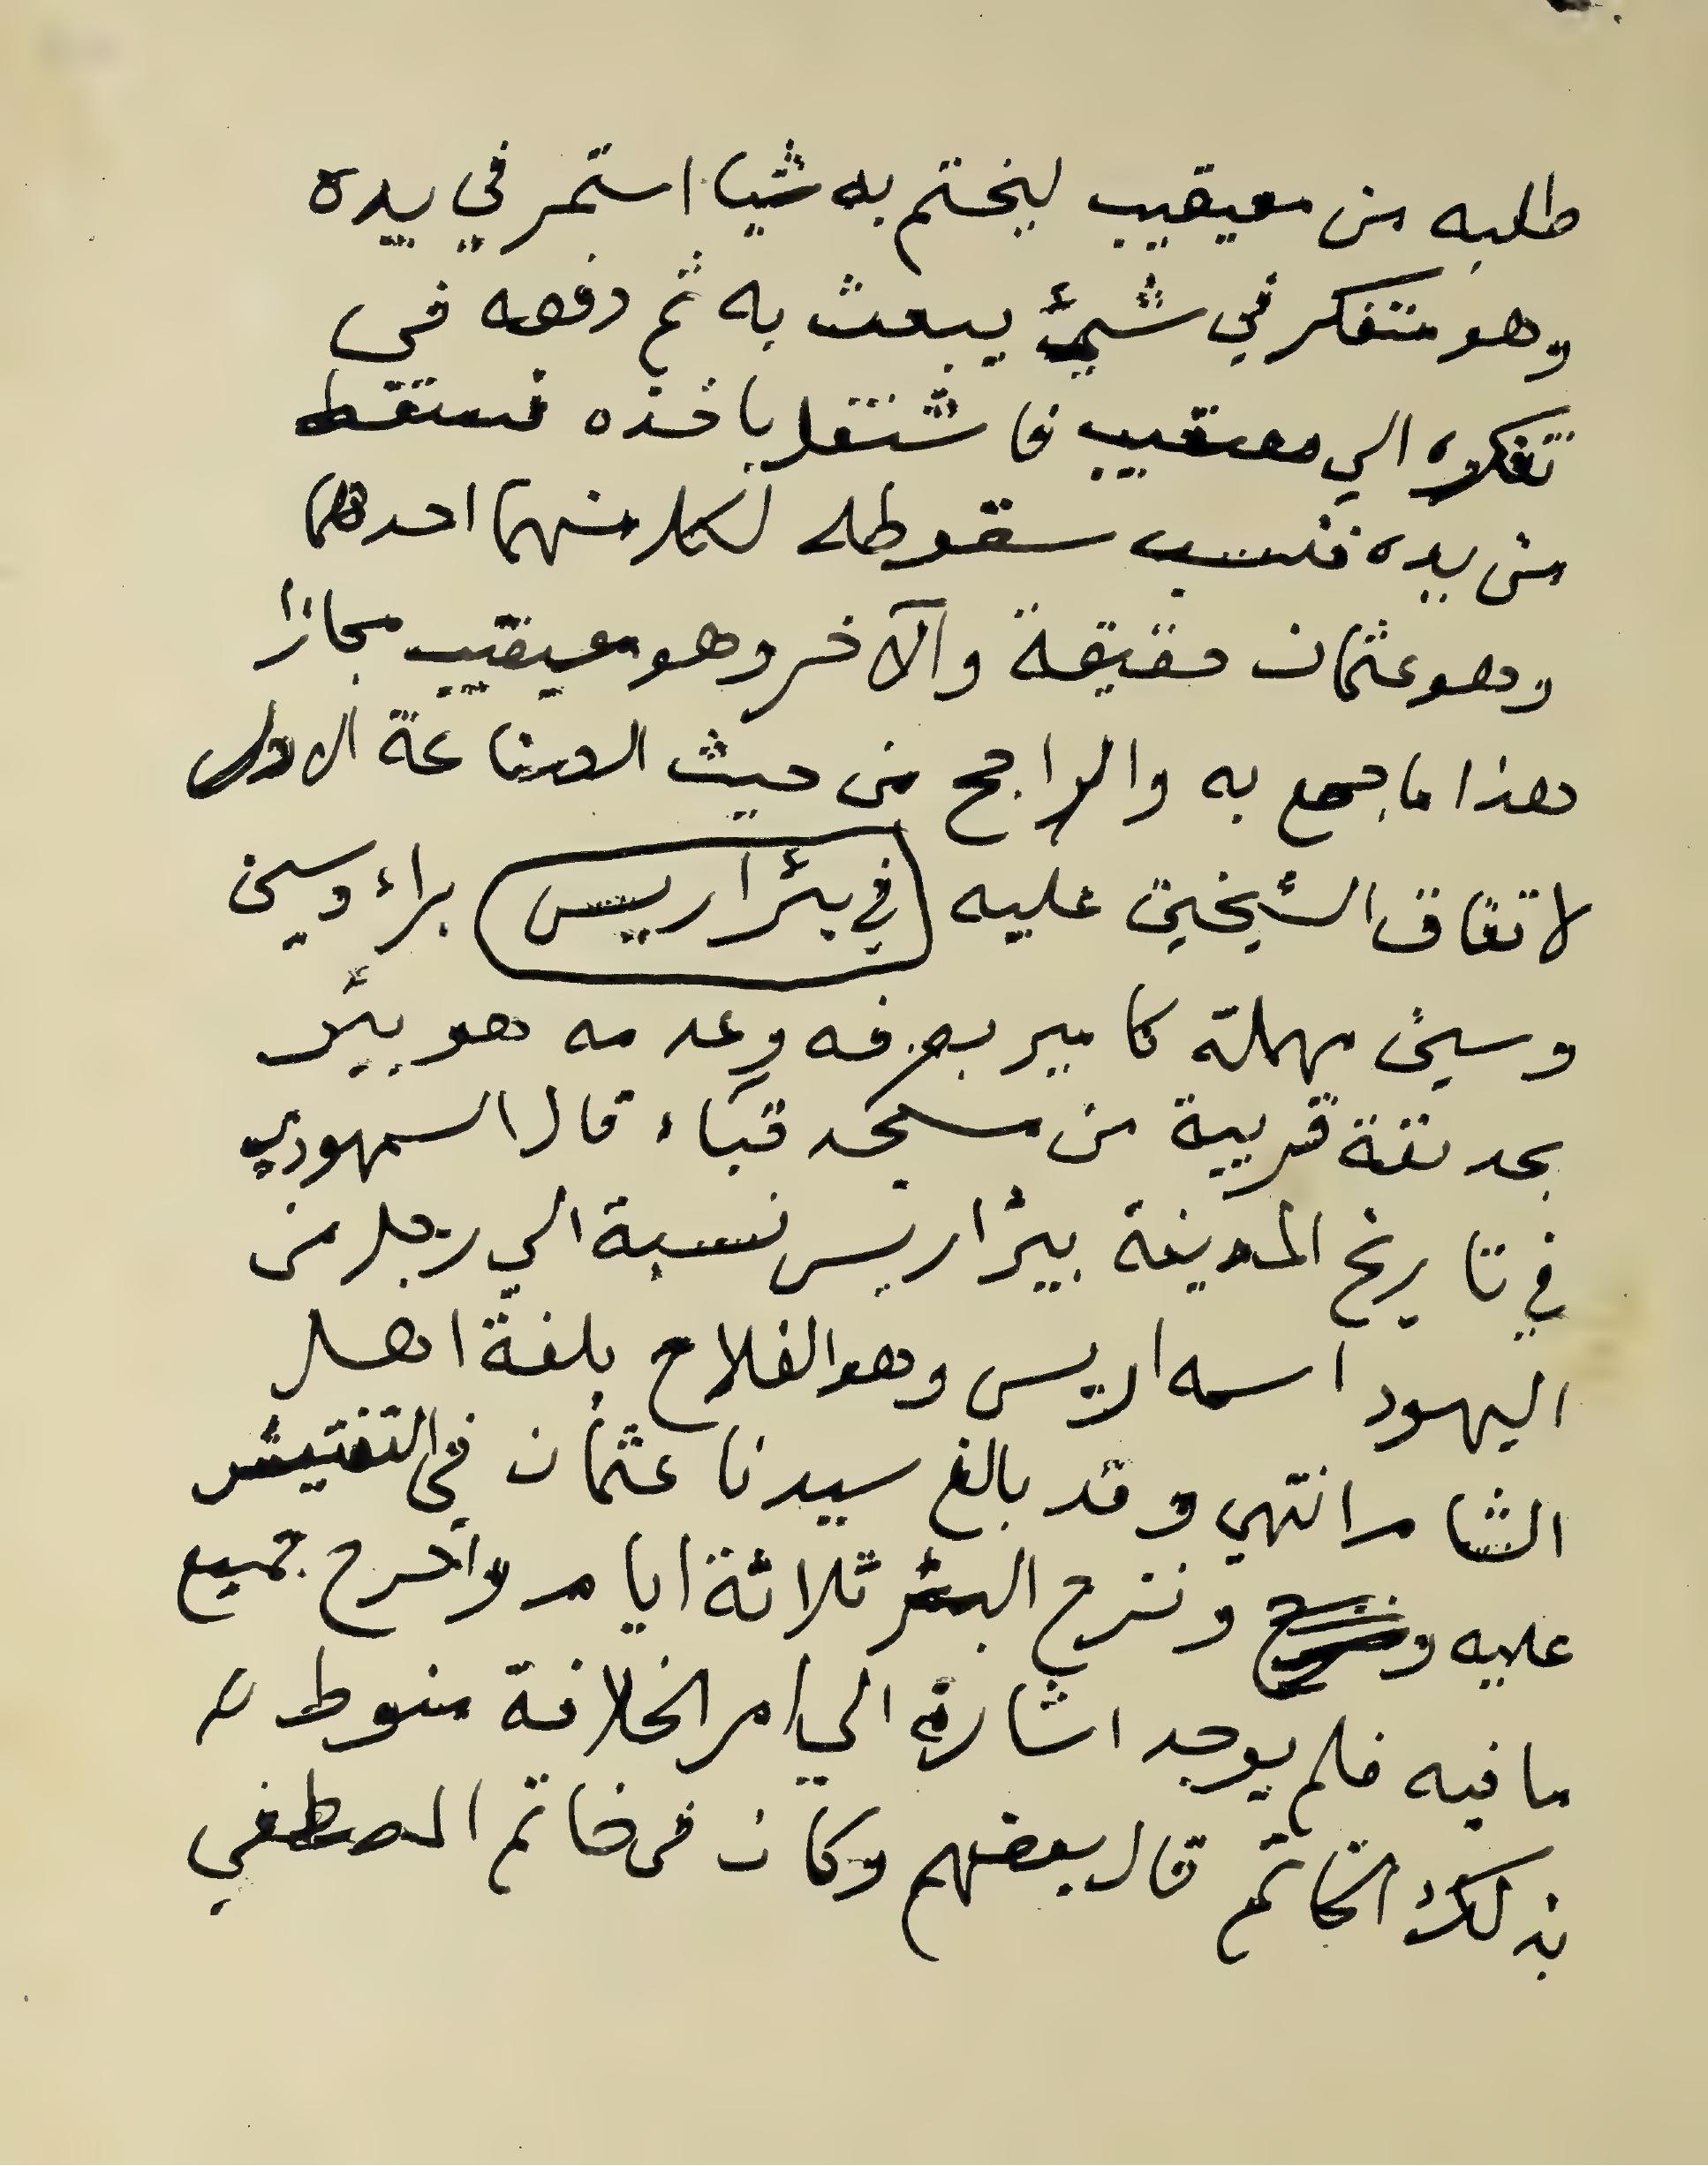 طلبه من معيقيب ليختم به شيا استمر في يده
وهو متفكر في شيئ يبعث به ثم دفعه فى
تفكره الي معيقيب فاشتغل باخذه فسقط
من يده فنسب سقوطه لكل منهما احدهما
وهو عثمان حقيقة والآخر وهو معيقيب مجازا
هذا ما جمع به والراجح من حيث الصناعة الاول
لاتفاق الشيخين عليه في بئر اريس براء وسين
وسين مهملة كامير بصرفه وعدمه هو بير
بحديقة قريبة من مسجد قباء قال السمهودي
في تاريخ المدينة بيرٔ اريس نسبة الي رجل من
اليهود اسمه اريس وهو الفلاح بلغة اهل
الشام انتهي وقد بالغ سيدنا عثمان فى التفتيش
عليه ونزح البئر ثلاثة ايام واخرج جميع
ما فيه فلم يوجد اشارة الي امر الخلافة منوط
بذلك الخاتم قال بعضهم وكان في خاتم المصطفي